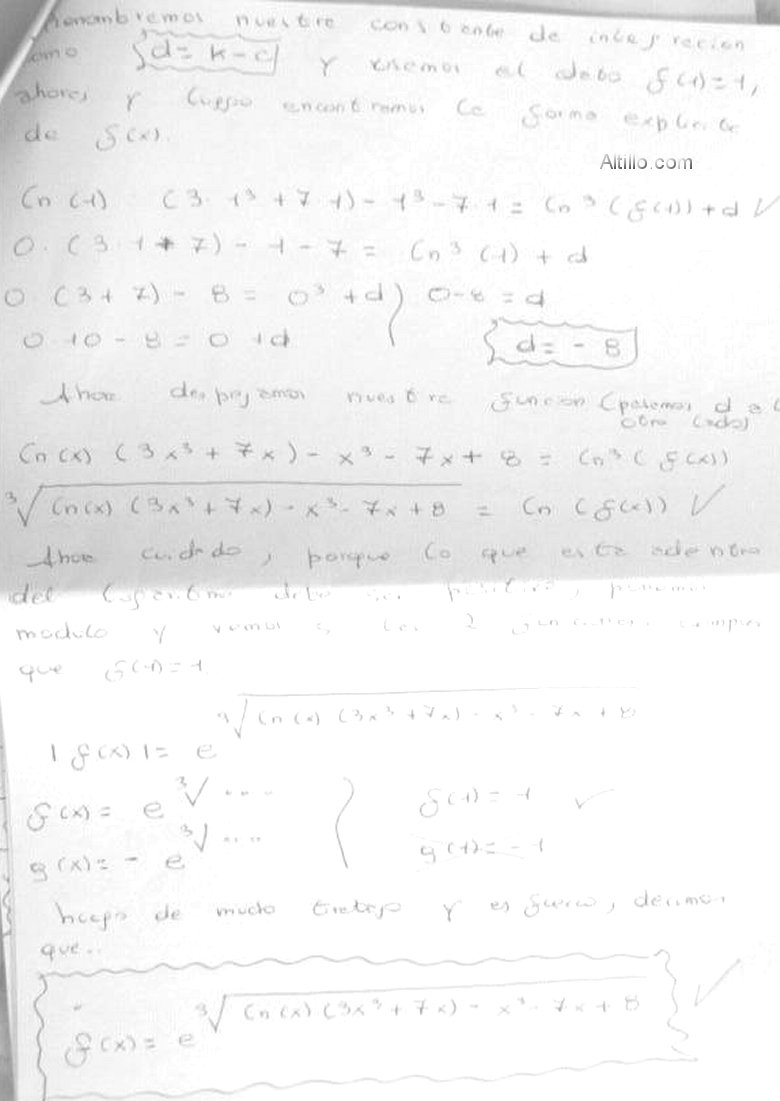 Renombremos nuestra constante de integracion
como d = k - c y usemos el dato f(1) = 1,
ahora, y luego encontramos la forma explicita
de f(x).
Altillo.com
ln (1) (3 · 1³ + 7 · 1) - 1³ - 7 · 1 = ln³ (f(1)) + d ✓
0 · (3 · 1 + 7) - 1 - 7 = ln³ (1) + d
0 (3 + 7) - 8 = 0³ + d 0 - 8 = d
0 · 10 - 8 = 0 + d d = - 8
Ahora despejamos nuestra funcion (pasemos d al
otro lado)
ln (x) (3x³ + 7x) - x³ - 7x + 8 = ln³ (f(x))
³√(ln(x) (3x³ + 7x) - x³ - 7x + 8) = ln (f(x)) ✓
Ahora cuidado, porque lo que esta adentro
del logaritmo debe ser positivo, ponemos
modulo y vemos
que f(1) = 1
³√(ln(x) (3x³ + 7x) - x³ - 7x + 8)
| f(x) | = e
f(x) = e ³√.... f(1) = 1 ✓
g(x) = - e ³√.... g(1) = - 1
luego de mucho trabajo y esfuerzo, decimos
que..
³√(ln(x) (3x³ + 7x) - x³ - 7x + 8) ✓
f(x) = e